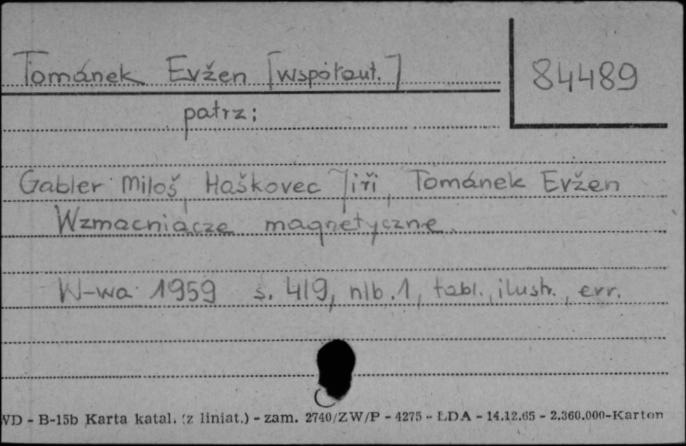 Tománek Evžen [współaut.]
84489
patrz:
Gabler Miloš, Haškovec Jiří, Tománek Evžen
Wzmacniacze magnetyczne.
W-wa 1959 s. 419, nlb. 1, tabl., ilustr., err.
WD - B-15b Karta katal. (z liniat.) - zam. 2740/ZW/P - 4275 - ŁDA - 14.12.65 - 2.360.000-Karton